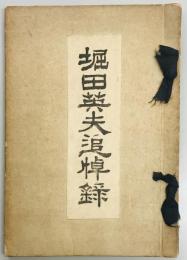 堀田英夫追悼録